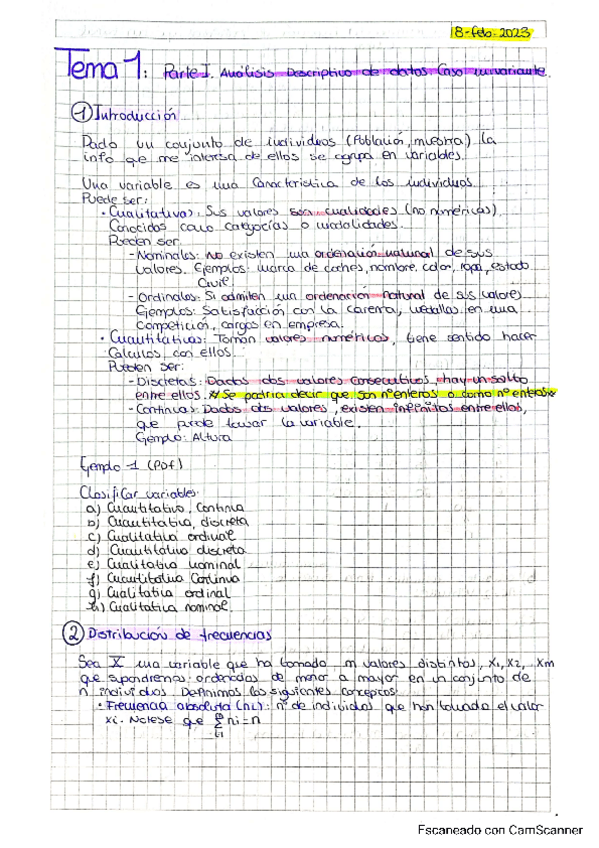 8-feb-2023
Tema 1: Parte I. Análisis Descriptivo de datos. Caso univariante.
① Introducción
Dado un conjunto de individuos (Población, muestra) la
info que me interesa de ellos se agrupa en variables.
Una variable es una Característica de los individuos.
Puede ser:
• Cualitativas: Sus valores son cualidades (no numéricas).
Conocidos como categorías o modalidades.
Pueden ser
- Nominales: no existen una ordenación natural de sus
valores. Ejemplos: marca de coches, nombre, color, ropa, estado
Civil.
- Ordinales: Si admiten una ordenación natural de sus valores
Ejemplos: Satisfacción con la carrera, medallas en una
Competición, cargos en empresa.
• Cuantitativas: Toman valores numéricos, tiene sentido hacer
Calculos con ellos.
Pueden ser:
- Discretas: Dados dos valores consecutivos, hay un salto
entre ellos. * Se podria decir que son nº enteros o como nº enteros*
- Continuas: Dados dos valores, existen infinitos entre ellos,
que puede tomar la variable.
Ejemplo: Altura
Ejemplo 1 (Pdf)
Clasificar variables.
a) Cuantitativo, Continua
b) Cuantitativa, discreta
c) Cualitativa ordinal
d) Cuantitativo discreta
e) Cualitativa nominal
f) Cuantitativa Continua
g) Cualitativa ordinal
h) Cualitativa nominal.
② Distribución de frecuencias
Sea X una variable que ha tomado m valores distintos, x1, x2, xm
que supondremos ordenados de menor a mayor en un conjunto de
n individuos. Definimos los siguientes conceptos:
• Frecuencia absoluta (ni): nº de individuos que han tomado el valor
xi. Notese que ∑ ni = n
Escaneado con CamScanner